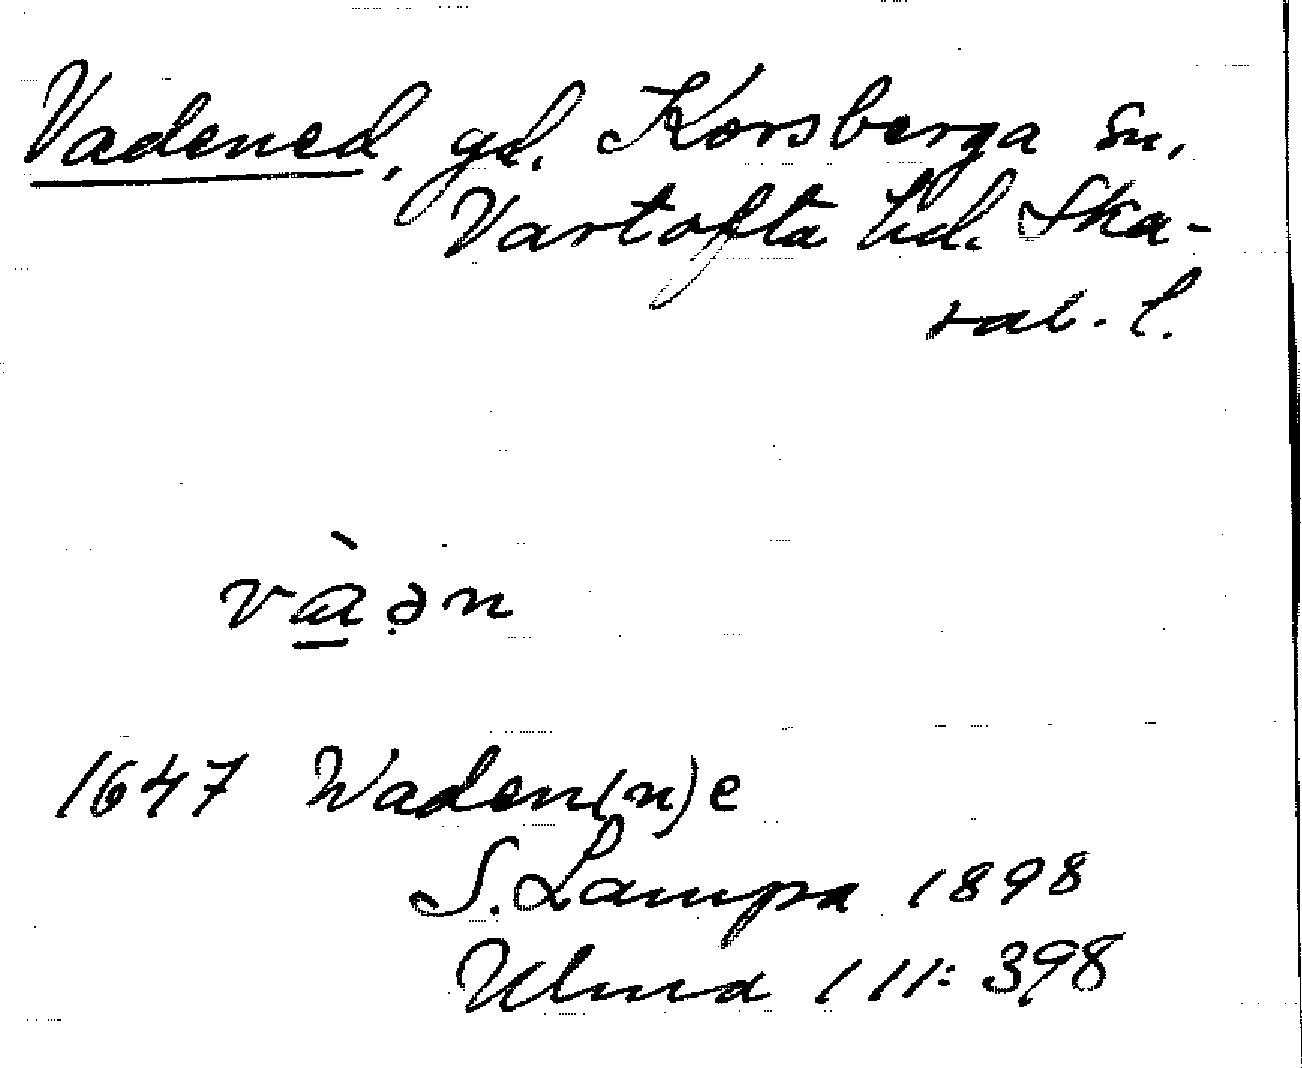 Vadened, gd. Korsberga sn,
Vartofta hd. Ska-
rab. l.
và̱ən
1647 Waden(n)e
S. Lampa 1898
Ulma 111:398